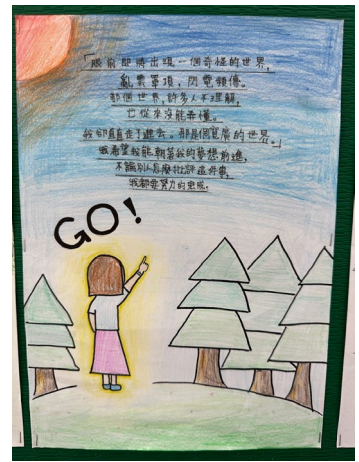 「眼前即將出現一個奇怪的世界,
亂雲罩頂,閃電頻傳。
那個世界,許多人不理解,
也從來沒能弄懂。
我卻直直走了進去。那是個寬廣的世界。」
我希望我能朝著我的夢想前進,
不論別人怎麼批評這件事,
我都要努力的完成。
GO!